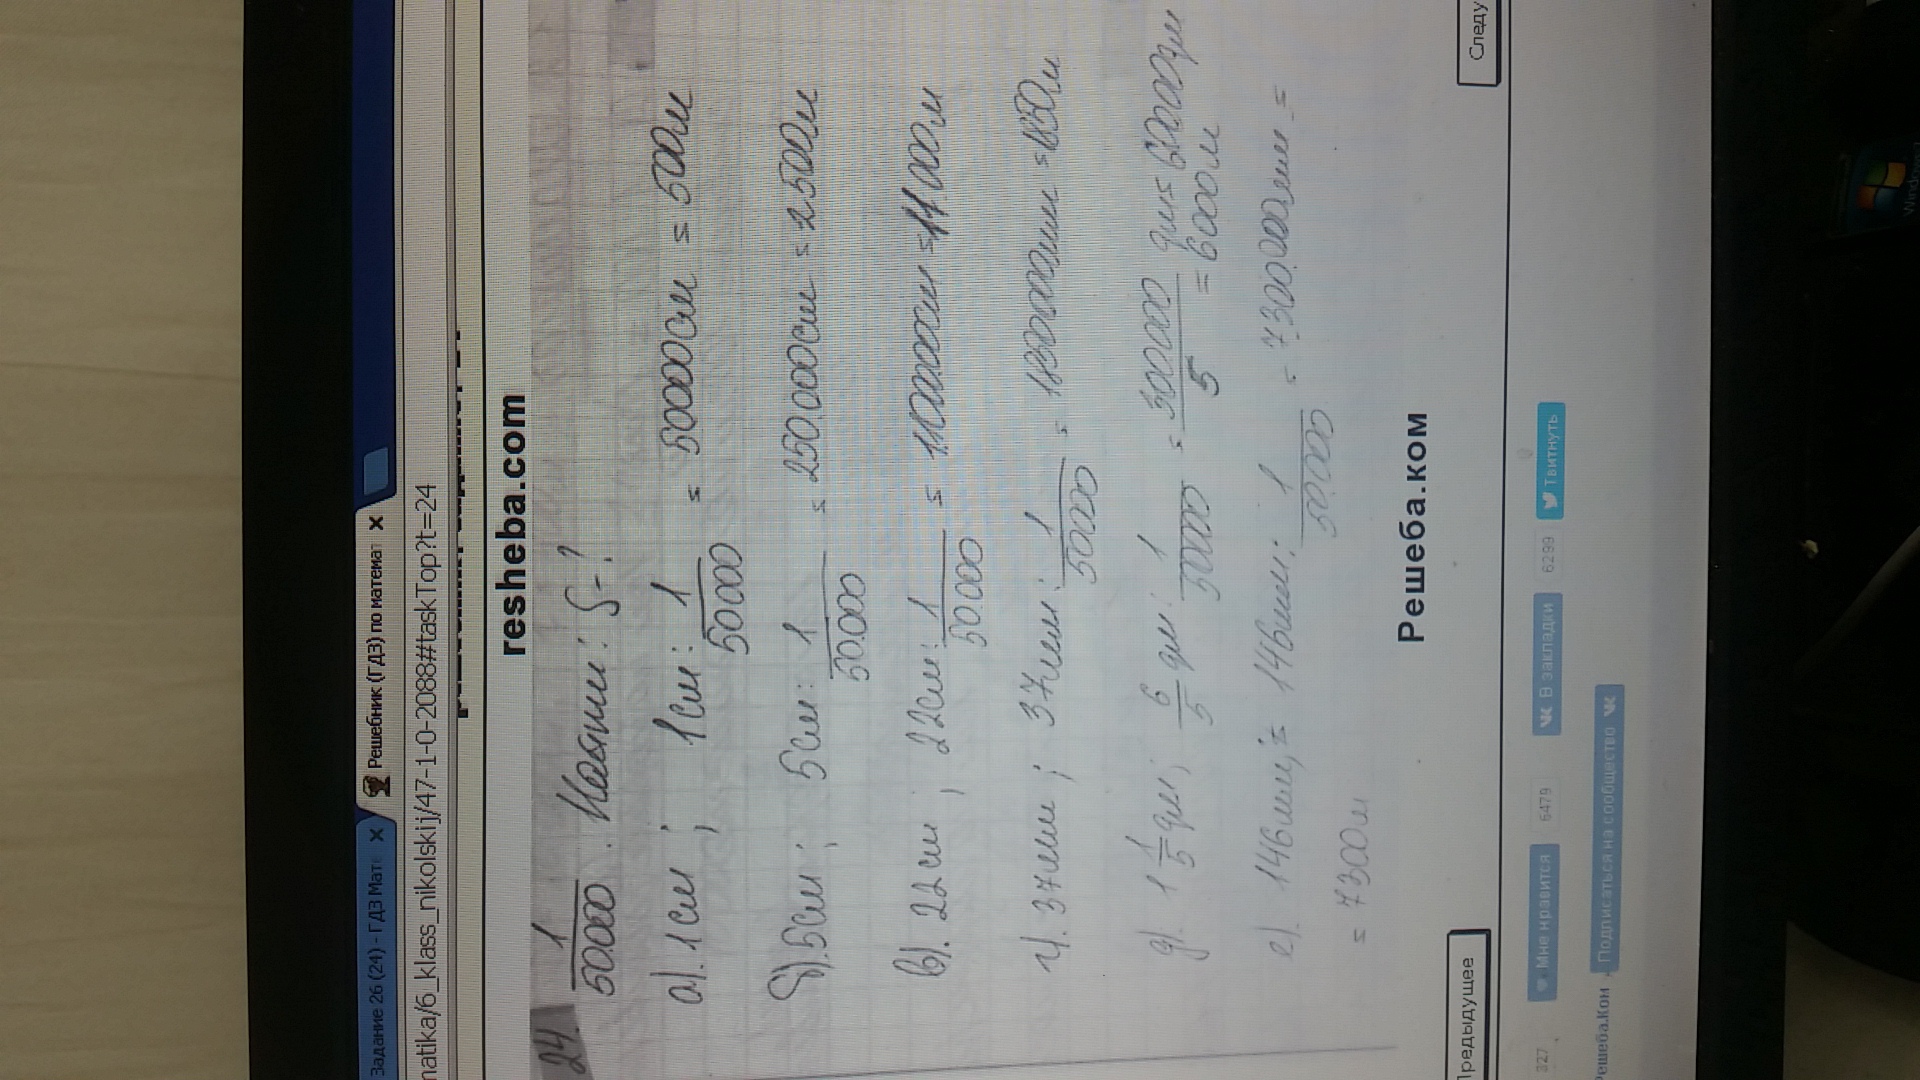 Задание 26 (24) - ГДЗ Мате x Решебник (ГДЗ) по математ x
matika/6_klass_nikolskij/47-1-0-2088#taskTop?t=24
resheba.com
24. 1/50.000. Масшт: S-?
а). 1см; 1см: 1/50000 = 50000см = 500м
б). 5см; 5см: 1/50.000 = 250.000см = 2500м
в). 22см; 22см: 1/50.000 = 1100.000см = 11000м
г). 37мм; 37мм: 1/50000 = 1850000мм = 1850м
д). 1 1/5 дм; 6/5 дм: 1/50000 = 300000/5 дм = 60000дм
= 6000м
е). 146мм; = 146мм: 1/50.000 = 7.300.000мм =
= 7300м
Решеба.ком
Предыдущее Следу
327 Мне нравится 6479 В закладки 6299 Твитнуть
Решеба.Ком - Подписаться на сообщество
Windows